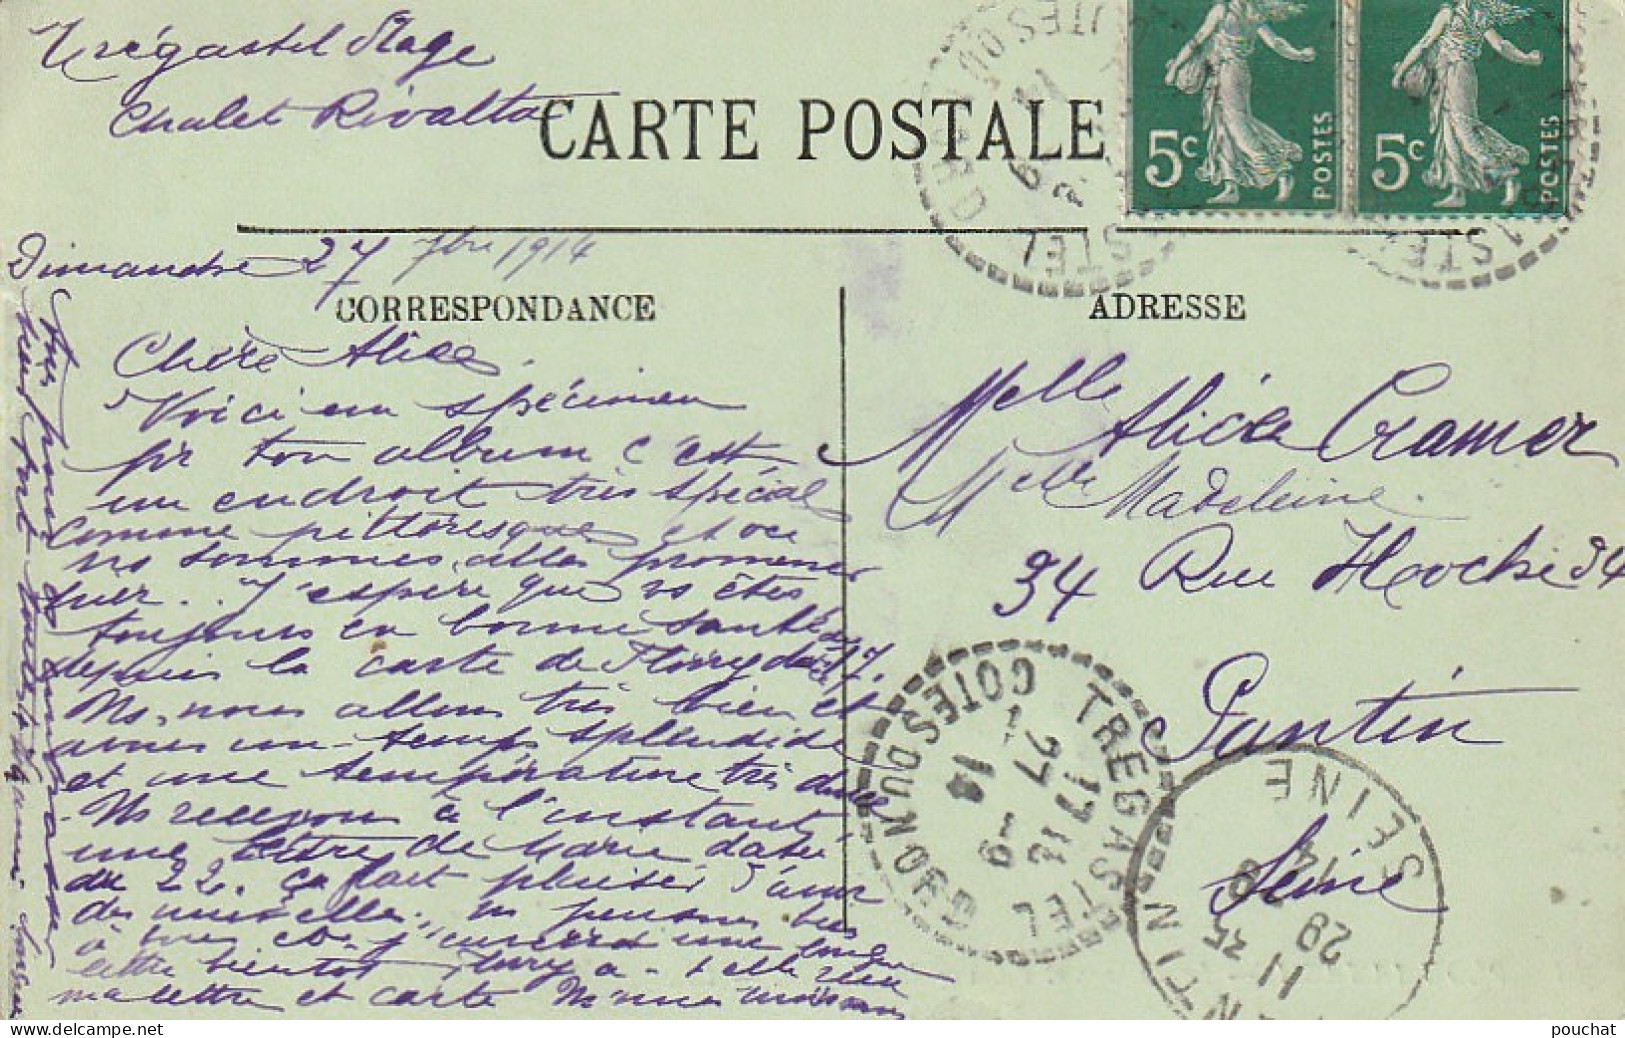 Trégastel Plage
Chalet Rivalta
CARTE POSTALE
5c POSTES
5c POSTES
Dimanche 27 7bre 1914
CORRESPONDANCE
ADRESSE
Chère Alice,
Voici un spécimen
pr ton album c'est
un endroit très spécial
comme pittoresque et où
ns sommes allés promener
hier. J'espère que vs êtes
toujours en bonne santé
depuis la carte de Floury du 17.
Ns, nous allons très bien et
avons un temps splendide
et une température très douce
Ns recevons à l'instant
une lettre de Marie datée
du 22. Ça fait plaisir d'avoir
des nouvelles, ns pensons bien
à vous et j'enverrai une longue
lettre bientôt Floury a-t-elle reçu
ma lettre et carte Ns vous
embrasser
Melle Alice Cramer
Melle Madeleine
34 Rue Hoche 34
Pantin
Seine
TREGASTEL
COTES DU NORD
17 12
27 - 9
14
PANTIN
SEINE
11 35
29 - 9
14
pouchat